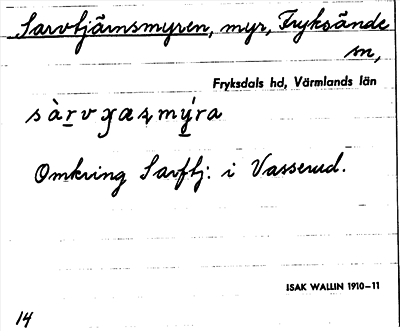 Sarvtjärnsmyren, myr, Fryksände
sn,
Fryksdals hd, Värmlands län
Omkring Sarftj: i Vasserud.
ISAK WALLIN 1910–11
14